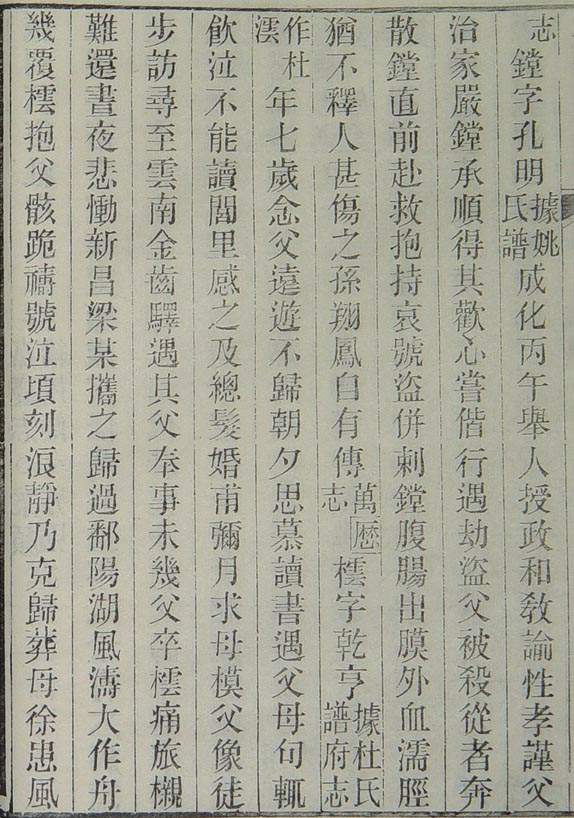 志鏜字孔明據姚氏譜成化丙午舉人授政和敎諭性孝謹父
治家嚴鏜承順得其歡心嘗偕行遇劫盜父被殺從者奔
散鏜直前赴救抱持哀號盜併刺鏜腹腸出膜外血濡脛
猶不釋人甚傷之孫翔鳳自有傳萬歷志橒字乾亨據杜氏譜府志
作杜澐年七歲念父遠遊不歸朝夕思慕讀書遇父母句輒
飮泣不能讀閭里感之及總髮婚甫彌月求母模父像徒
步訪尋至雲南金齒驛遇其父奉事未幾父卒橒痛旅櫬
難還晝夜悲慟新昌梁某攜之歸過鄱陽湖風濤大作舟
幾覆橒抱父骸跪禱號泣頃刻浪靜乃克歸葬母徐患風